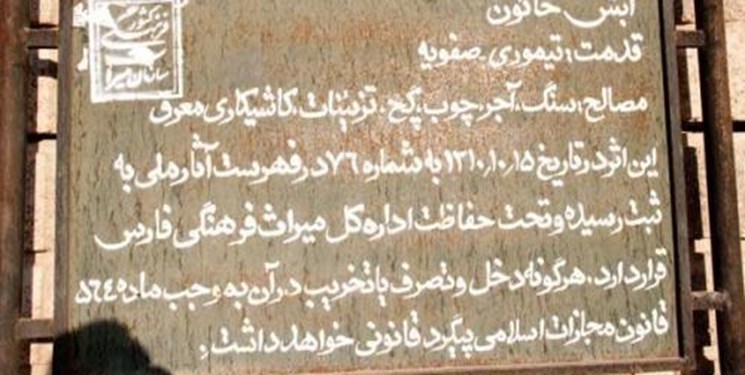 ابش خاتون
قدمت: تیموری ـ صفویه
مصالح: سنگ، آجر، چوب، گچ. تزئینات: کاشیکاری معرق
این اثر در تاریخ ۱۳۱۰،۱۰،۱۵ به شماره ۷۶ در فهرست آثار ملی به
ثبت رسیده و تحت حفاظت اداره کل میراث فرهنگی فارس
قرار دارد. هرگونه دخل و تصرف یا تخریب در آن به موجب ماده ٥٦٤
قانون مجازات اسلامی پیگرد قانونی خواهد داشت.
سازمان میراث
فرهنگی کشور